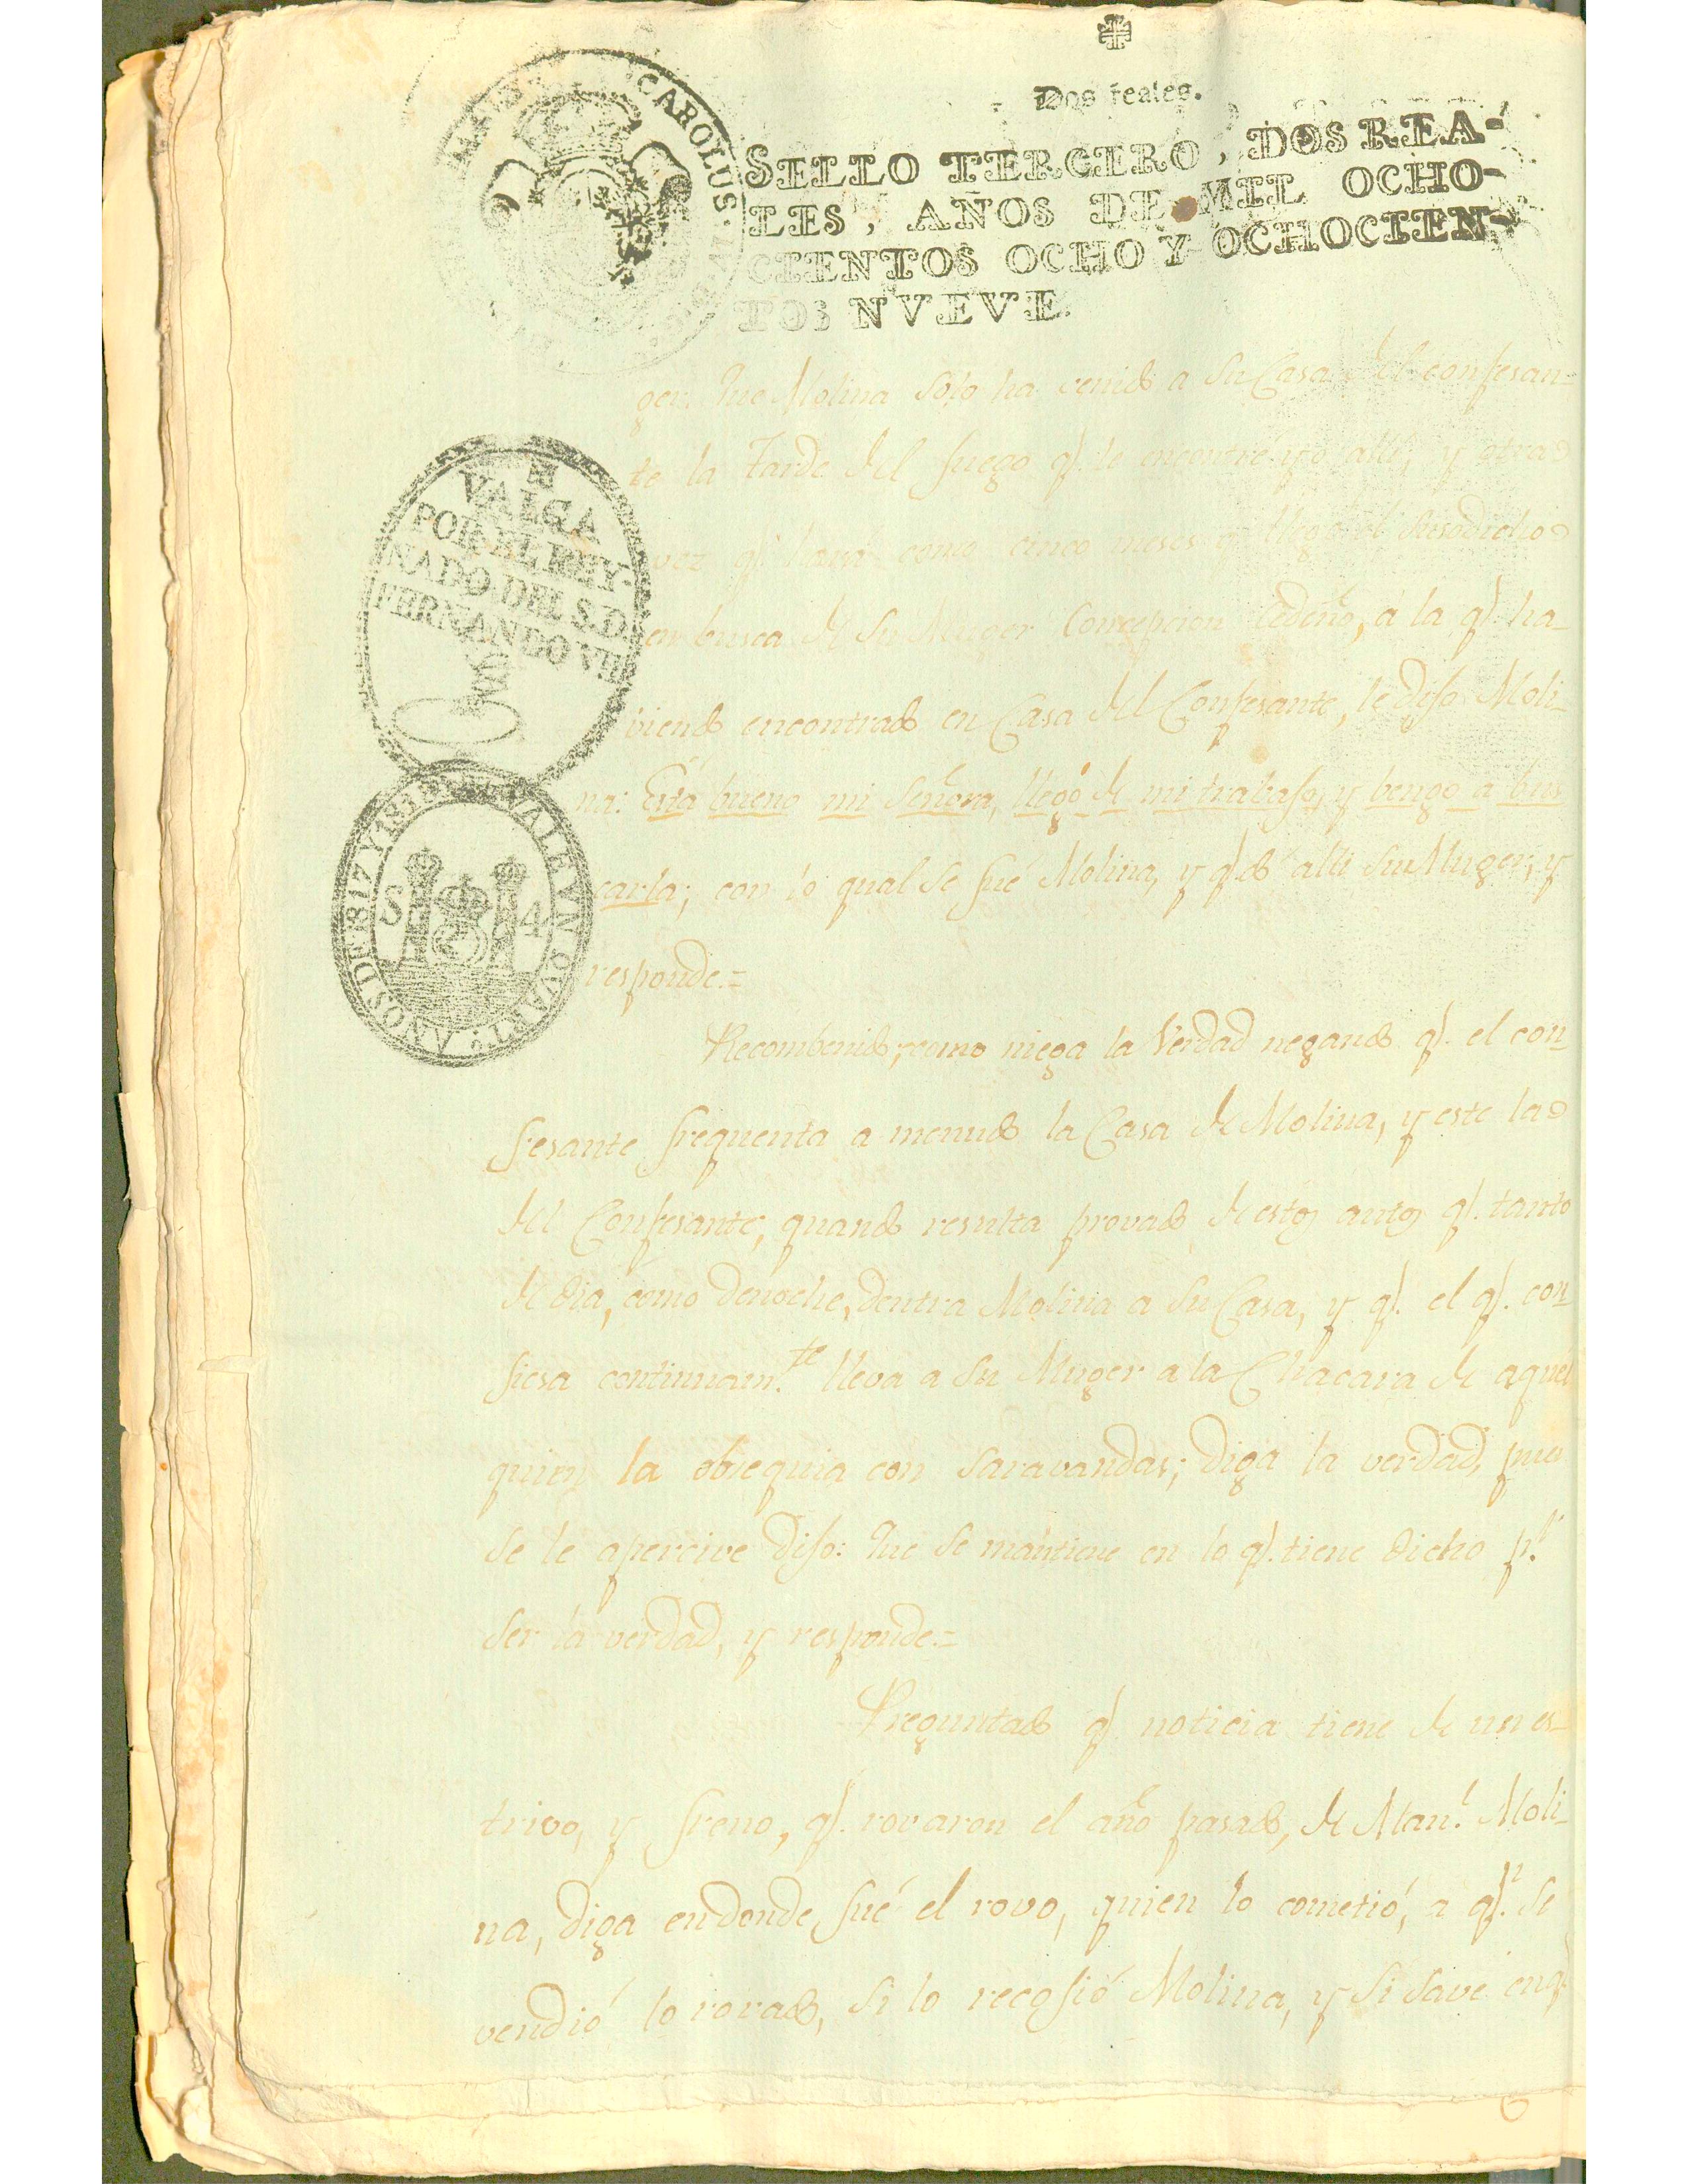 Dos reales.
SELLO TERCERO, DOS REA-
LES, AÑOS DE MIL OCHO-
CIENTOS OCHO Y OCHOCIEN-
TOS NVEVE.
CAROLUS
VALGA
POR EL REY-
NADO DEL S.D.
FERNANDO VII
VALE VN QVART.º AÑOS DE 1817 Y 1818
S 4
ger. Que Molina solo ha venido a su Casa del confesan=
te la Tarde del juego q.e le encontré yo alli, y otra
vez q.e hará como cinco meses q.e llegó el susodicho
en busca de su Muger Concepcion Cedeño, á la q.e ha_
viendo encontrado en Casa del Confesante, le dijo Moli_
na: Está bueno mi Señora, llegó de mi trabajo, y bengo a bus
carla; con lo qual se fué Molina, y q.do alli su Muger, y
responde.=
Recombenido, como niega la Verdad negando q.e el con_
fesante frequenta a menudo la Casa de Molina, y este la
del Confesante, quando resulta provado de estos autos q.e tanto
de dia, como denoche, dentra Molina a su Casa, y q.e el q.e con_
fiesa continuam.te lleva a su Muger a la Chacara de aquel
quien la obsequia con saravandas; diga la verdad, pues
se le apercive dijo: Que se mantiene en lo q.e tiene dicho p.r
ser la verdad, y responde.=
Preguntado q.e noticia tiene de un es_
trivo, y freno, q.e rovaron el año pasado, de Man.l Moli_
na, diga endonde fué el rovo, quien lo cometió, a q.n se
vendió lo rovado, si lo recojió Molina, y si save en q.e